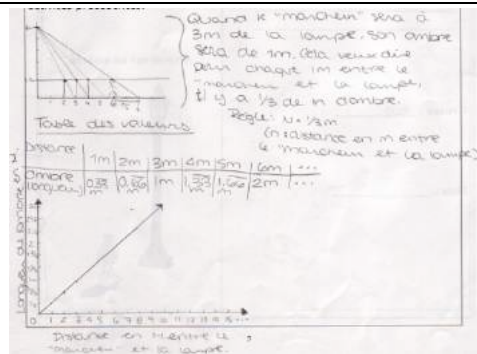 Quand le "marcheur" sera à
3m de la lampe, son ombre
sera de 1m. Cela veux dire
pour chaque 1m entre le
"marcheur" et la lampe,
il y a 1/3 de m d'ombre.
Règle: N = 1/3m
(n = distance en m entre
le "marcheur" et la lampe)
Table des valeurs
Distance 1m 2m 3m 4m 5m 6m ...
Ombre (longueur) 0.33 m 0.66 m 1m 1.33 m 1.66 m 2m ...
Longueur de l'ombre en
0 1 2 3 4 5 6 7 8 9 10 11 12 13 14 15 ...
Distance en m entre le
"marcheur" et la lampe.